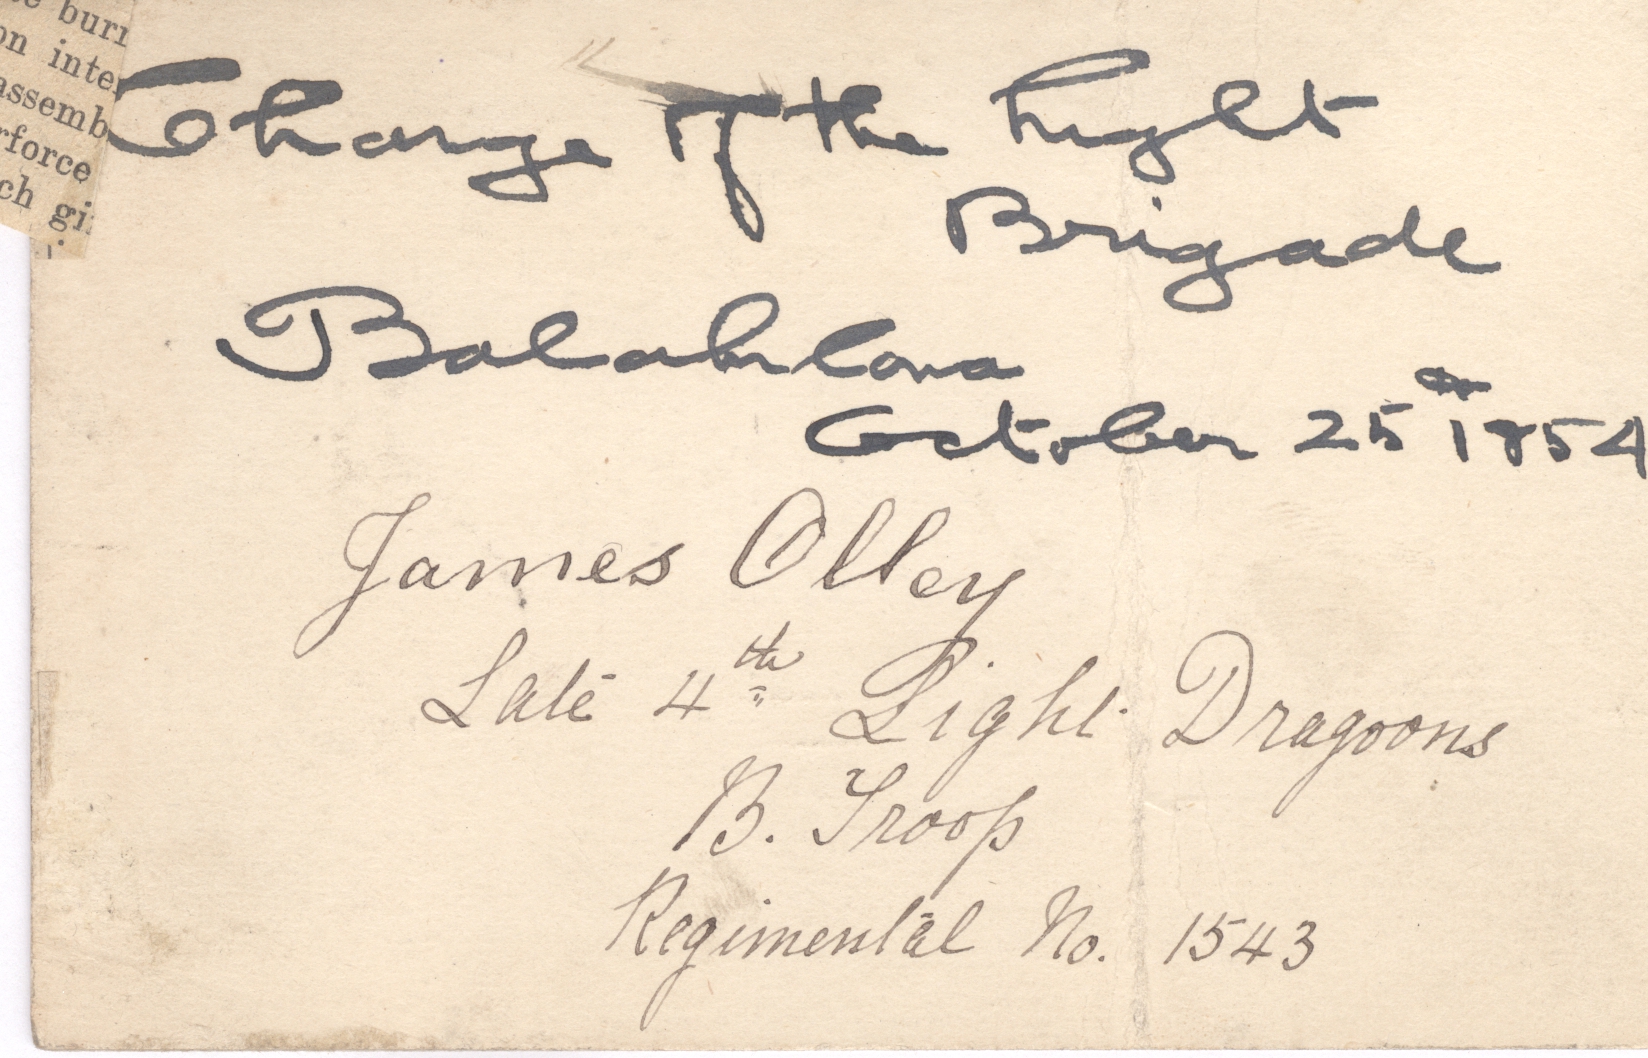 burr
on inter
assemb
rforce
ch gi
Charge of the Light
Brigade
Balaklava
October 25th 1854
James Olley
Late 4th Light Dragoons
B. Troop
Regimental No. 1543